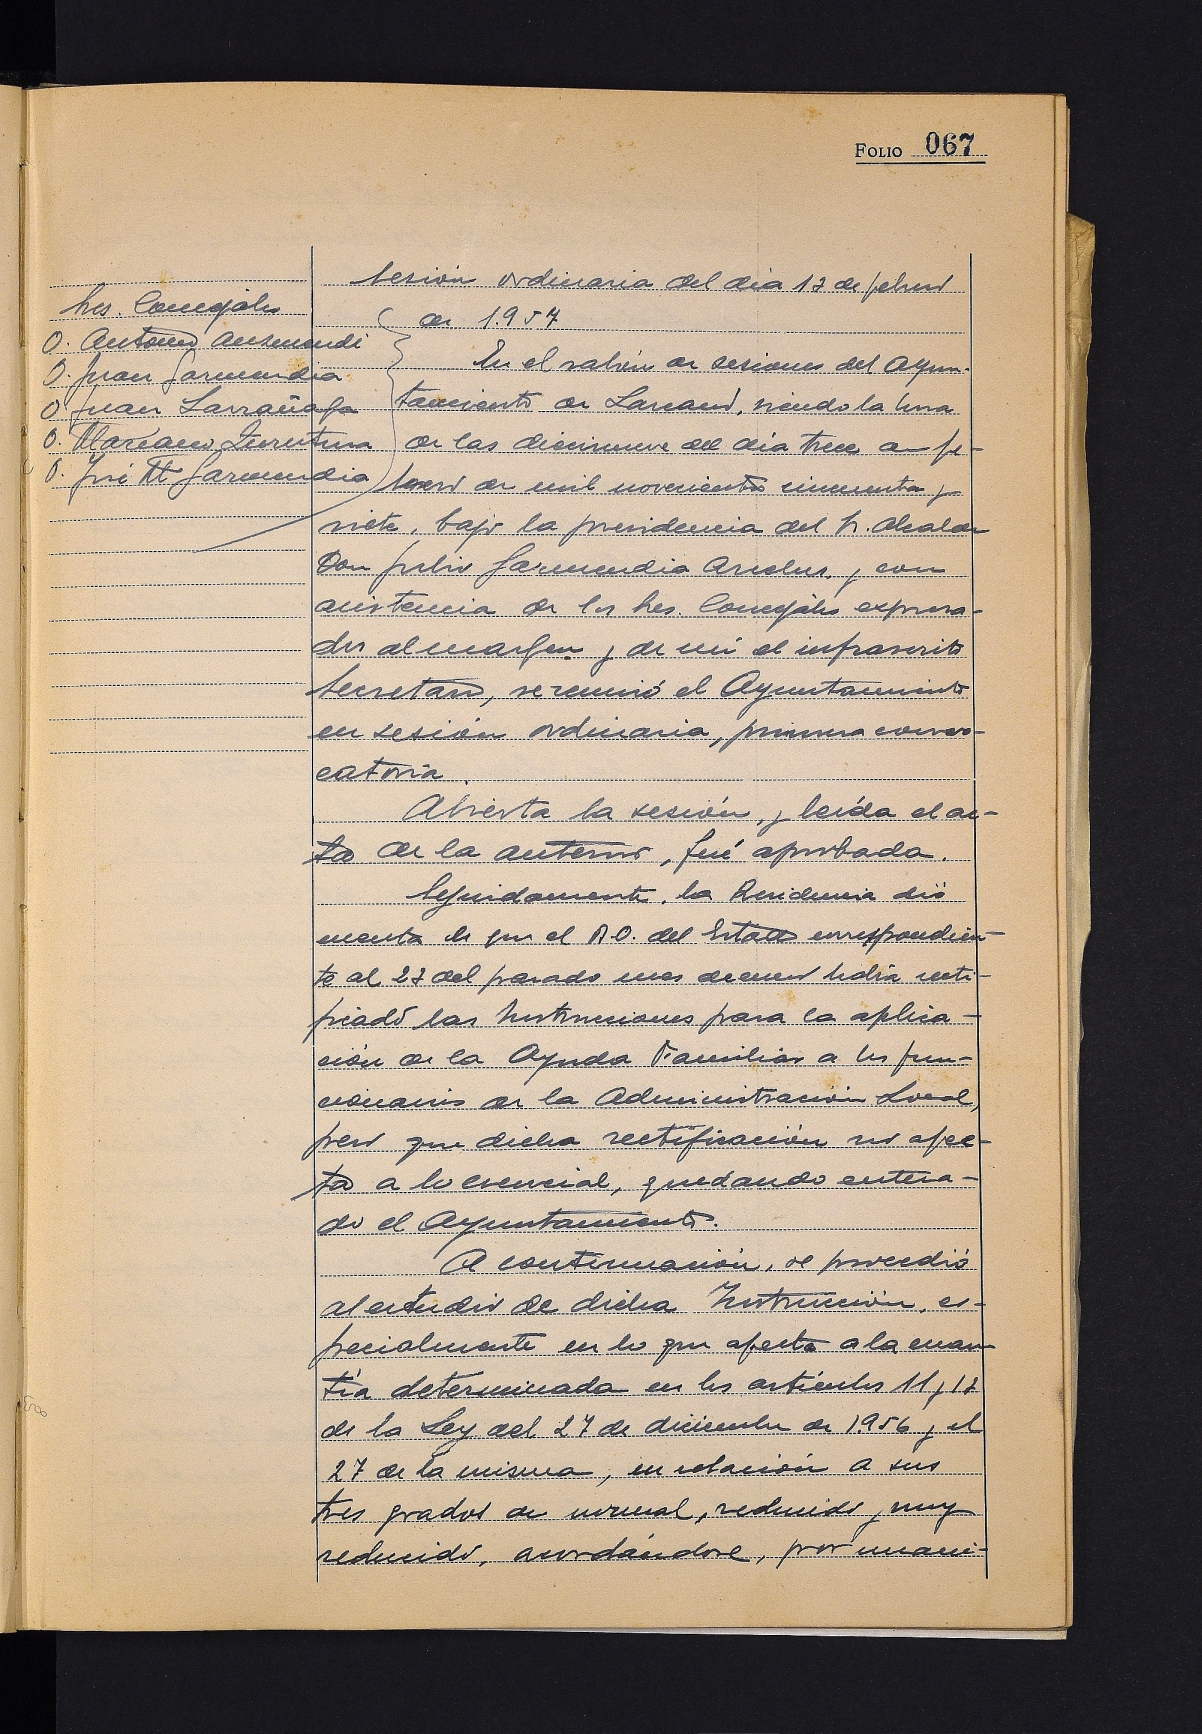 FOLIO 067
Sesión ordinaria del día 13 de febrero
de 1.957
Sres. Concejales
D. Antonio Aurmendi
D. Juan Garmendia
D. Juan Larrañaga
D. Mariano Irurtuza
D. José Mª Garmendia
En el salón de sesiones del Ayun-
tamiento de Lazcano, siendo la hora
de las diecinueve del día trece de fe-
brero de mil novecientos cincuenta y
siete, bajo la presidencia del Sr. Alcalde
Don Julio Garmendia y con
asistencia de los Sres. Concejales expresa-
dos al margen y de mí el infrascrito
Secretario, se reunió el Ayuntamiento
en sesión ordinaria, primera convo-
catoria.
Abierta la sesión, y leída el ac-
ta de la anterior, fué aprobada.
Seguidamente, la Presidencia dió
cuenta de que el B.O. del Estado correspondien-
te al 23 del pasado mes de enero había recti-
ficado las Instrucciones para la aplica-
ción de la Ayuda Familiar a los fun-
cionarios de la Administración Local,
pero que dicha rectificación no afec-
ta a lo esencial, quedando entera-
do el Ayuntamiento.
A continuación, se procedió
al estudio de dicha Instrucción, es-
pecialmente en lo que afecta a la cuan-
tía determinada en los artículos 11 y 12
de la Ley del 27 de diciembre de 1.956 y el
27 de la misma, en relación a sus
tres grados de normal, reducido y muy
reducido, acordándose, por unani-